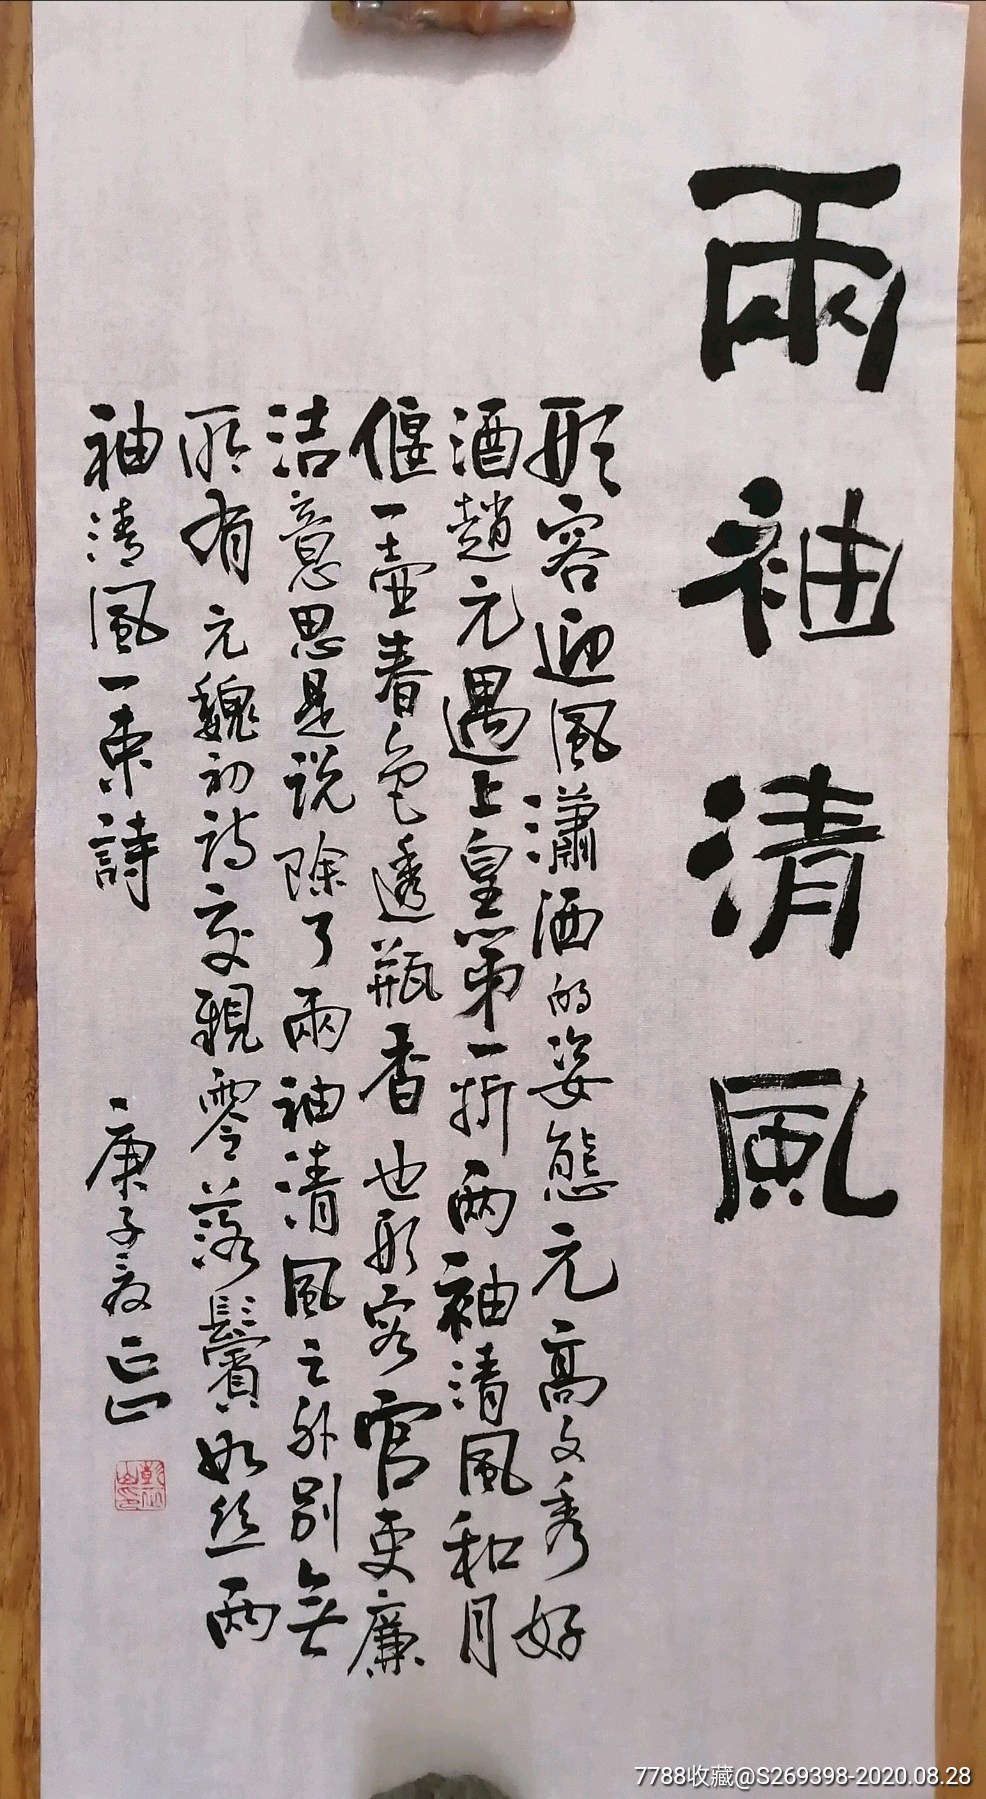 兩袖清風
形容迎風瀟洒的姿態元高文秀好
酒趙元遇上皇第一折兩袖清風和月
偃一壺春色透瓶香也形容官吏廉
洁意思是说除了兩袖清風之外別無
所有元魏初诗交親零落鬢如丝兩
袖清風一束詩
庚子夏正山
7788收藏@S269398-2020.08.28